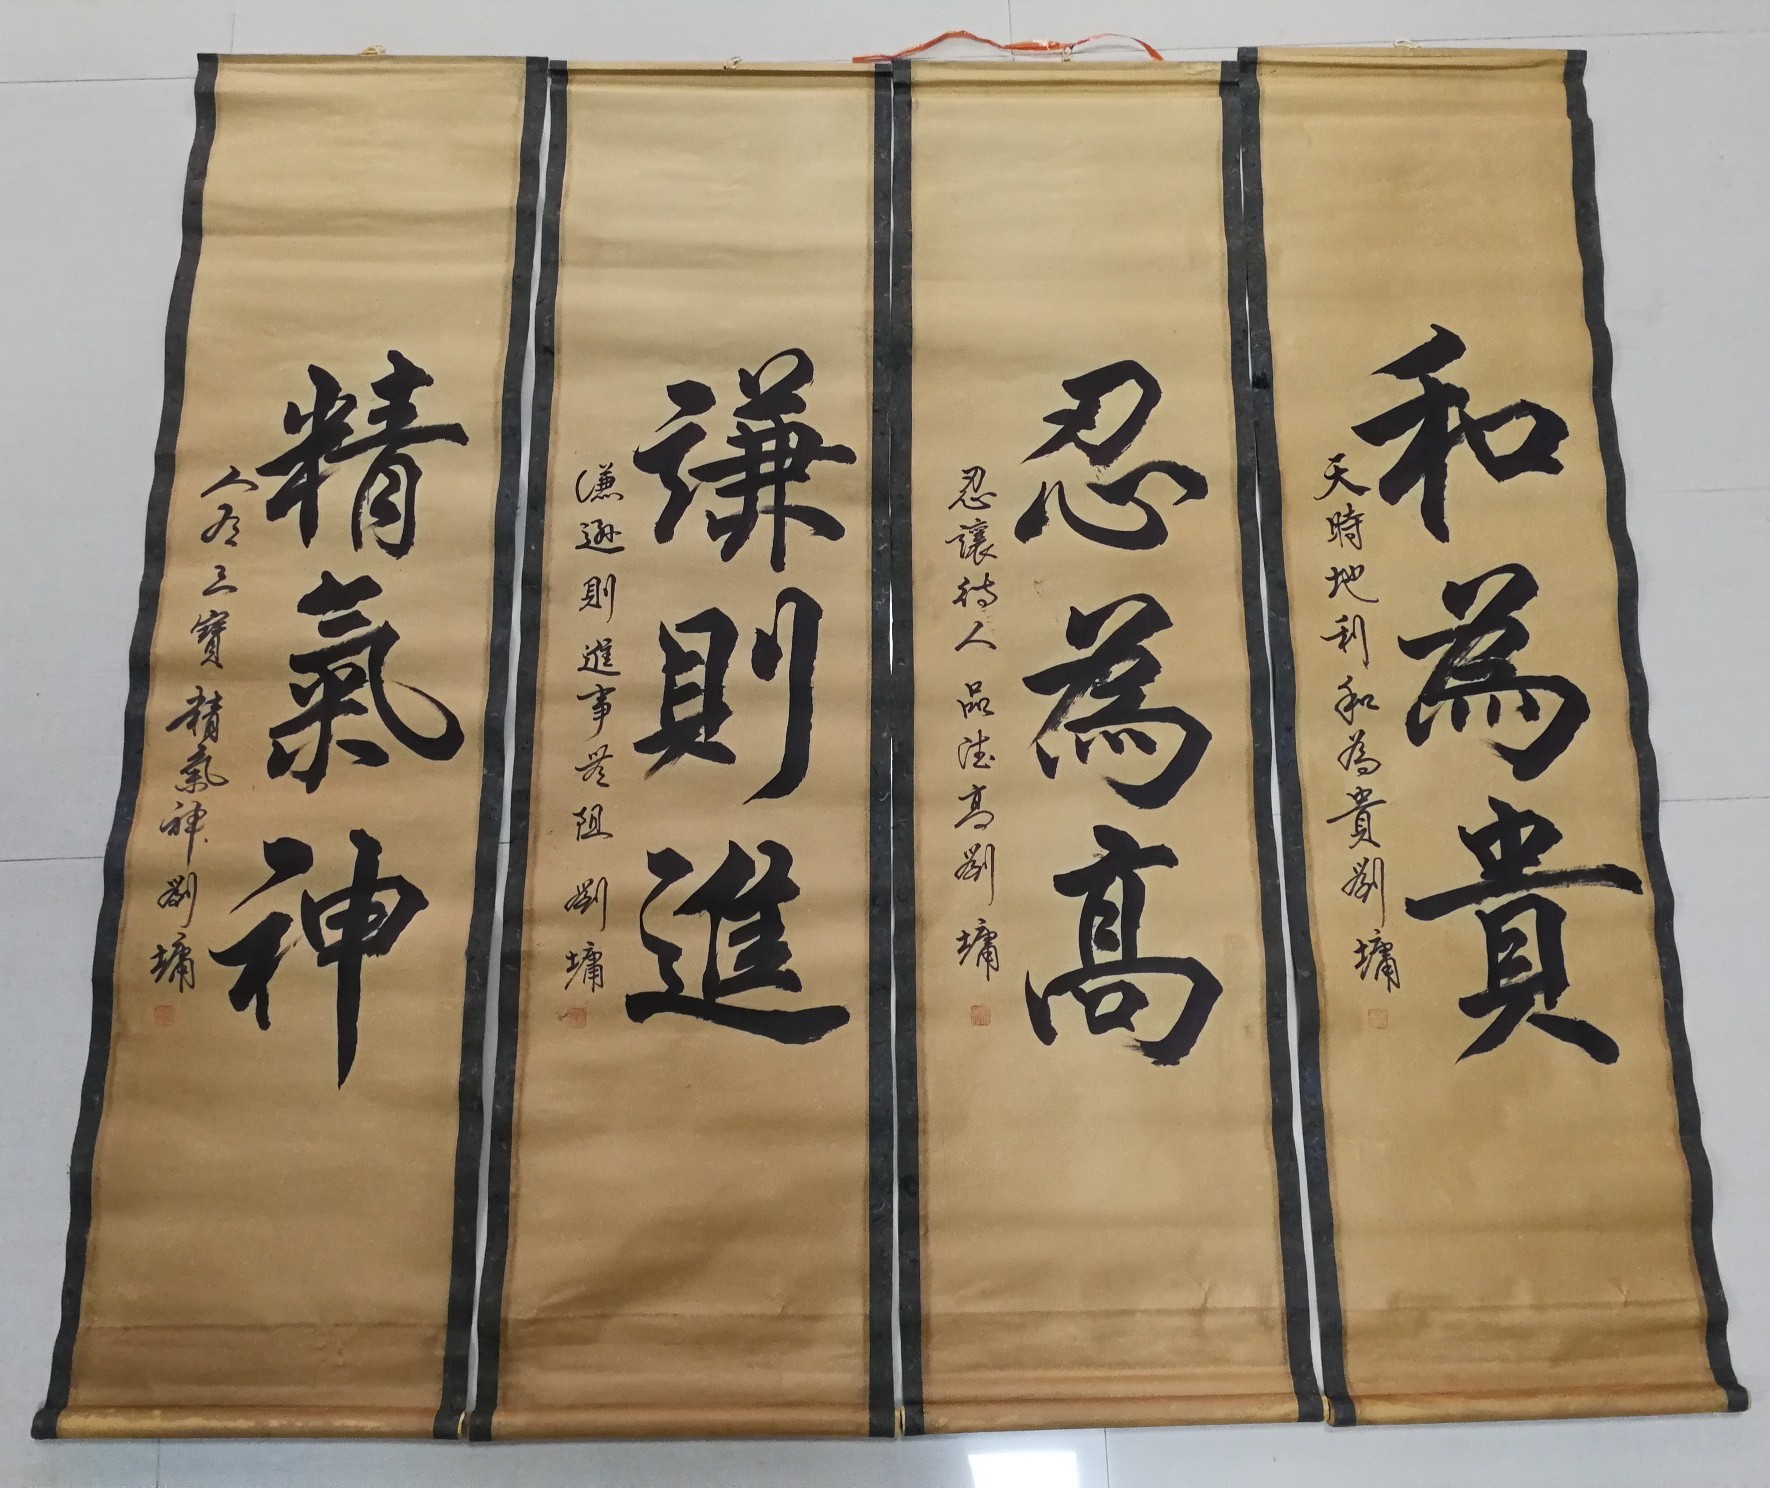 和為貴
天時地利和為貴劉墉
忍為高
忍讓待人品德高劉墉
謙則進
謙遜則進事無阻 劉墉
精氣神
人有三寶精氣神劉墉